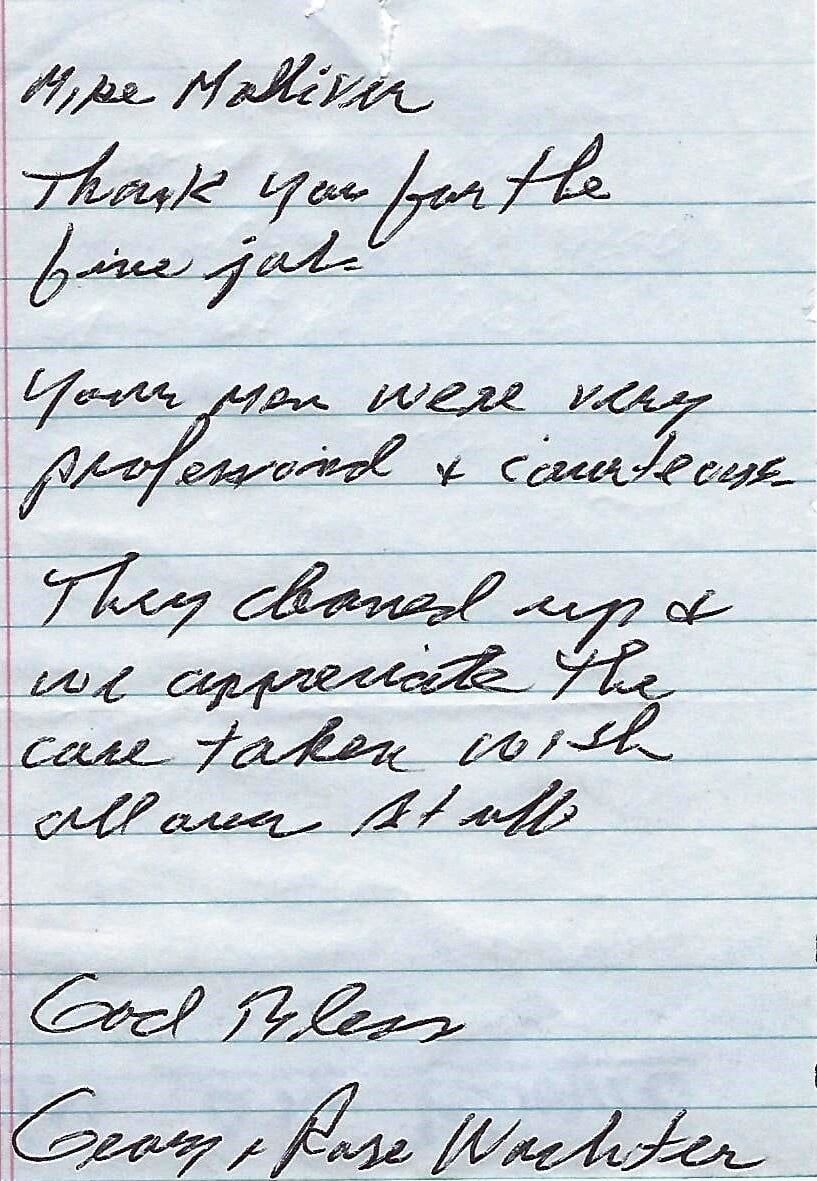 Mike Malliver
Thank you for the
fine job.
Your men were very
professional & courteous.
They cleaned up &
we appreciate the
care taken with
all our stuff
God Bless
& Rose Wachter